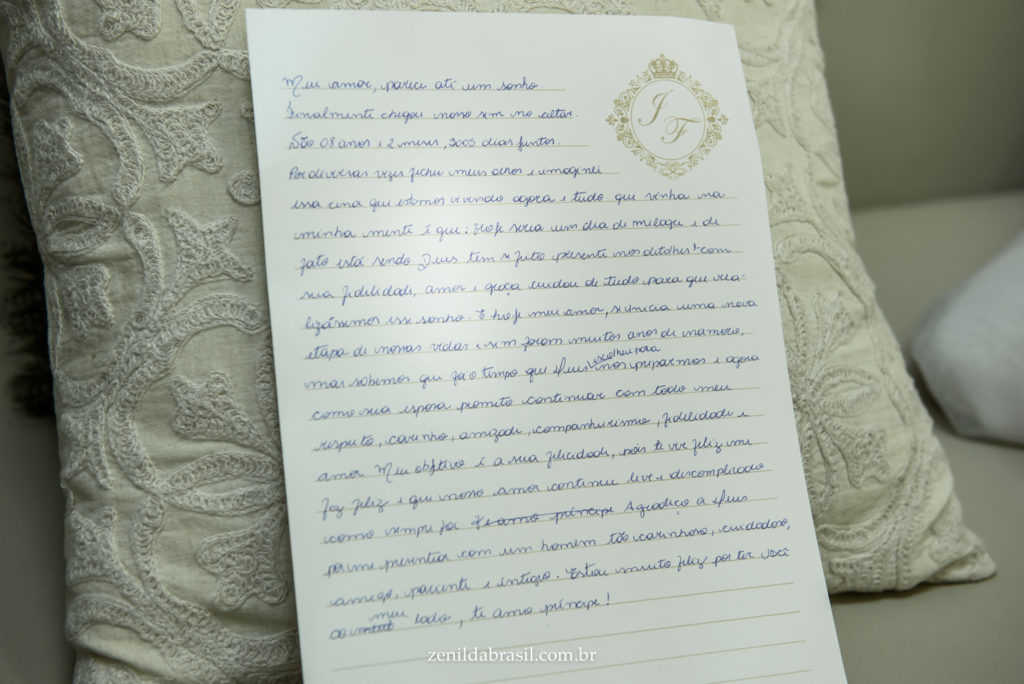 Meu amor, parece até um sonho
Finalmente chegou nosso sim no altar.
São 08 anos e 2 meses, 3005 dias juntos.
Por diversas vezes fechei meus olhos e imaginei
essa cena que estamos vivendo agora e tudo que vinha na
minha mente é que: Hoje seria um dia de milagre e de
fato está sendo Deus tem se feito presente nos detalhes! com
sua fidelidade, amor e graça cuidou de tudo para que rea-
lizássemos esse sonho. E hoje meu amor, se inicia uma nova
etapa de nossas vidas e sim foram muitos anos de namoro,
mas sabemos que foi o tempo que Deus escolheu para nos prepararmos e agora
como sua esposa prometo continuar com todo meu
respeito, carinho, amizade, companheirismo, fidelidade e
amor Meu objetivo é a sua felicidade, pois te ver feliz me
faz feliz e que nosso amor continue leve e descomplicado
como sempre foi Te amo príncipe Agradeço a Deus
por me presentear com um homem tão carinhoso, cuidadoso,
amigo, paciente e íntegro. Estou muito feliz por ter você
ao meu lado, te amo príncipe!
J F
zenildabrasil.com.br